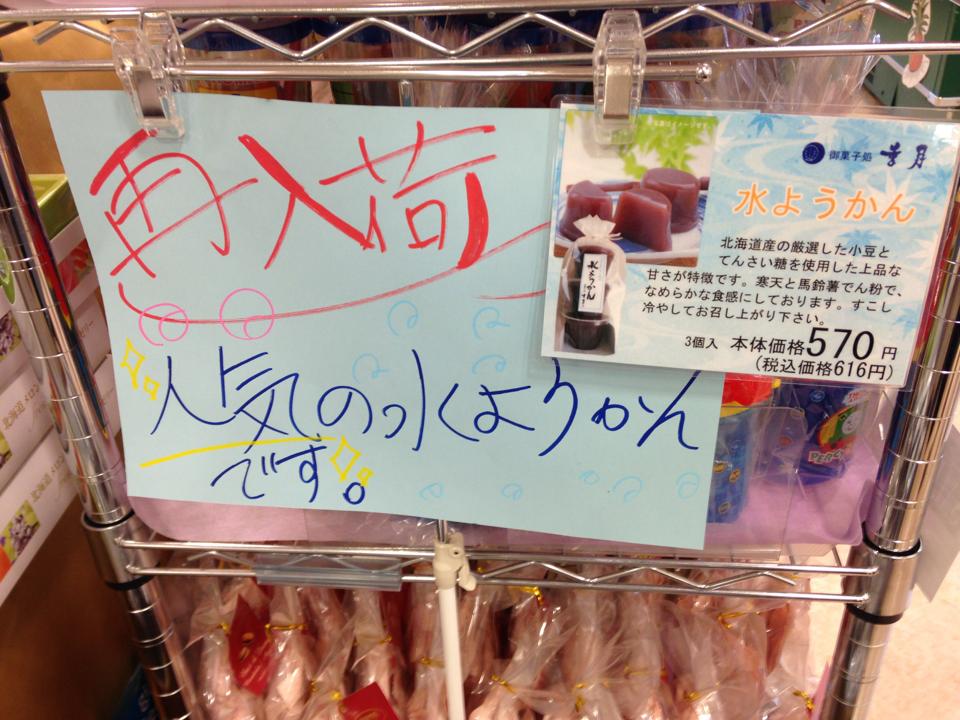 再入荷
人気の水ようかん
です。
御菓子処 幸月
水ようかん
北海道産の厳選した小豆と
てんさい糖を使用した上品な
甘さが特徴です。寒天と馬鈴薯でん粉で、
なめらかな食感にしております。すこし
冷やしてお召し上がり下さい。
3個入 本体価格570円
(税込価格616円)
水ようかん